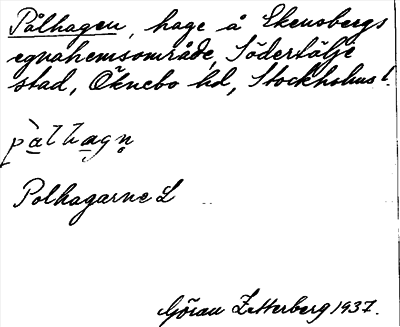 Pålhagen, hage å Ekensbergs
egnahemsområde, Södertälje
stad, Öknebo hd, Stockholms l.
pàlhagn̥
Polhagarne L
Göran Zetterberg 1937.